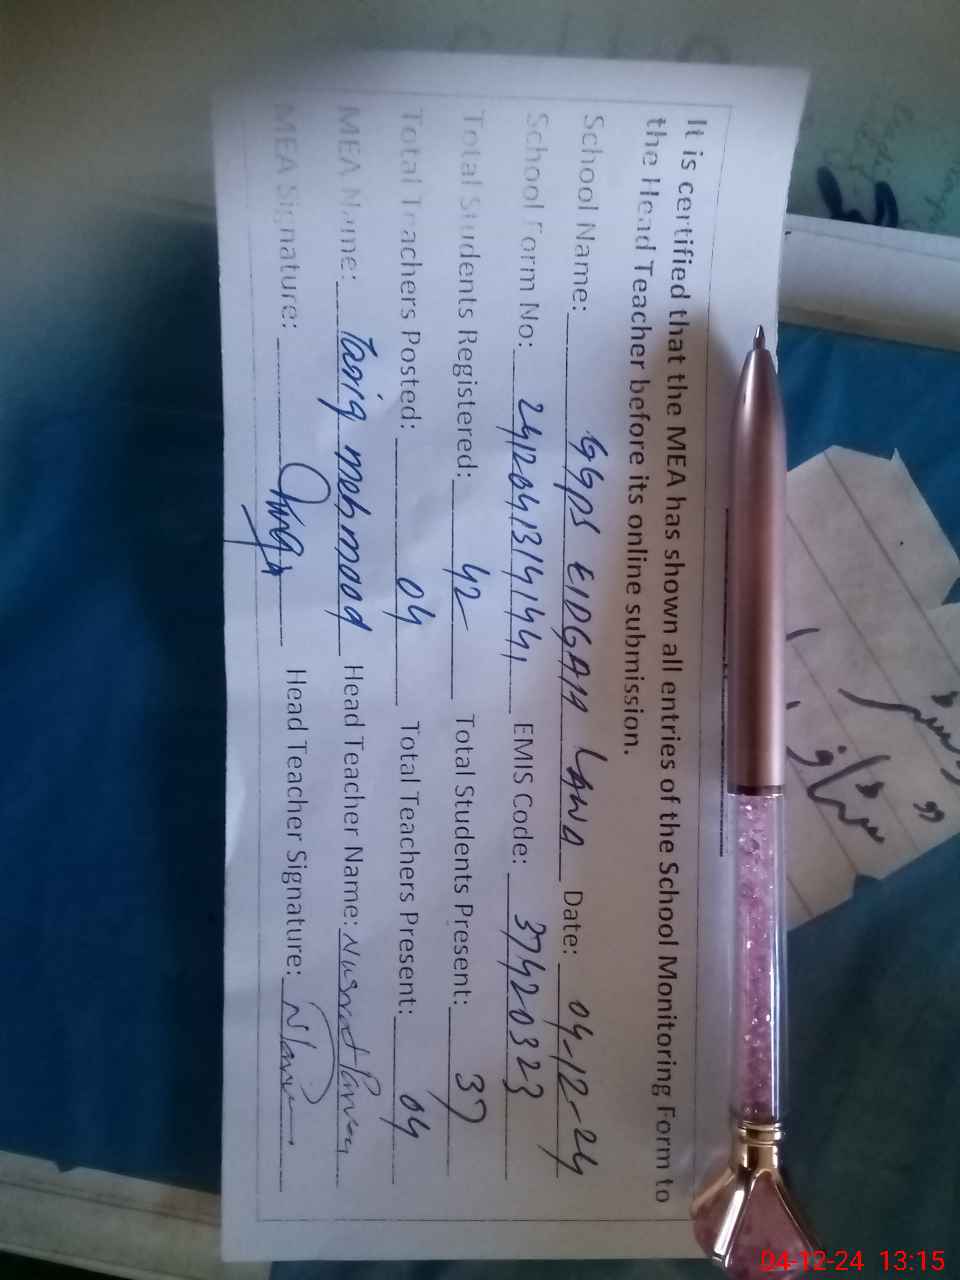 It is certified that the MEA has shown all entries of the School Monitoring Form to
the Head Teacher before its online submission.
School Name: GGPS EIDGAH LAWA Date: 04-12-24
School Form No: 24120413141441 EMIS Code: 37420323
Total Students Registered: 42 Total Students Present: 37
Total Teachers Posted: 04 Total Teachers Present: 04
MEA Name: Tariq mehmood Head Teacher Name: Nusrat Parveen
MEA Signature: Head Teacher Signature:
04-12-24 13:15